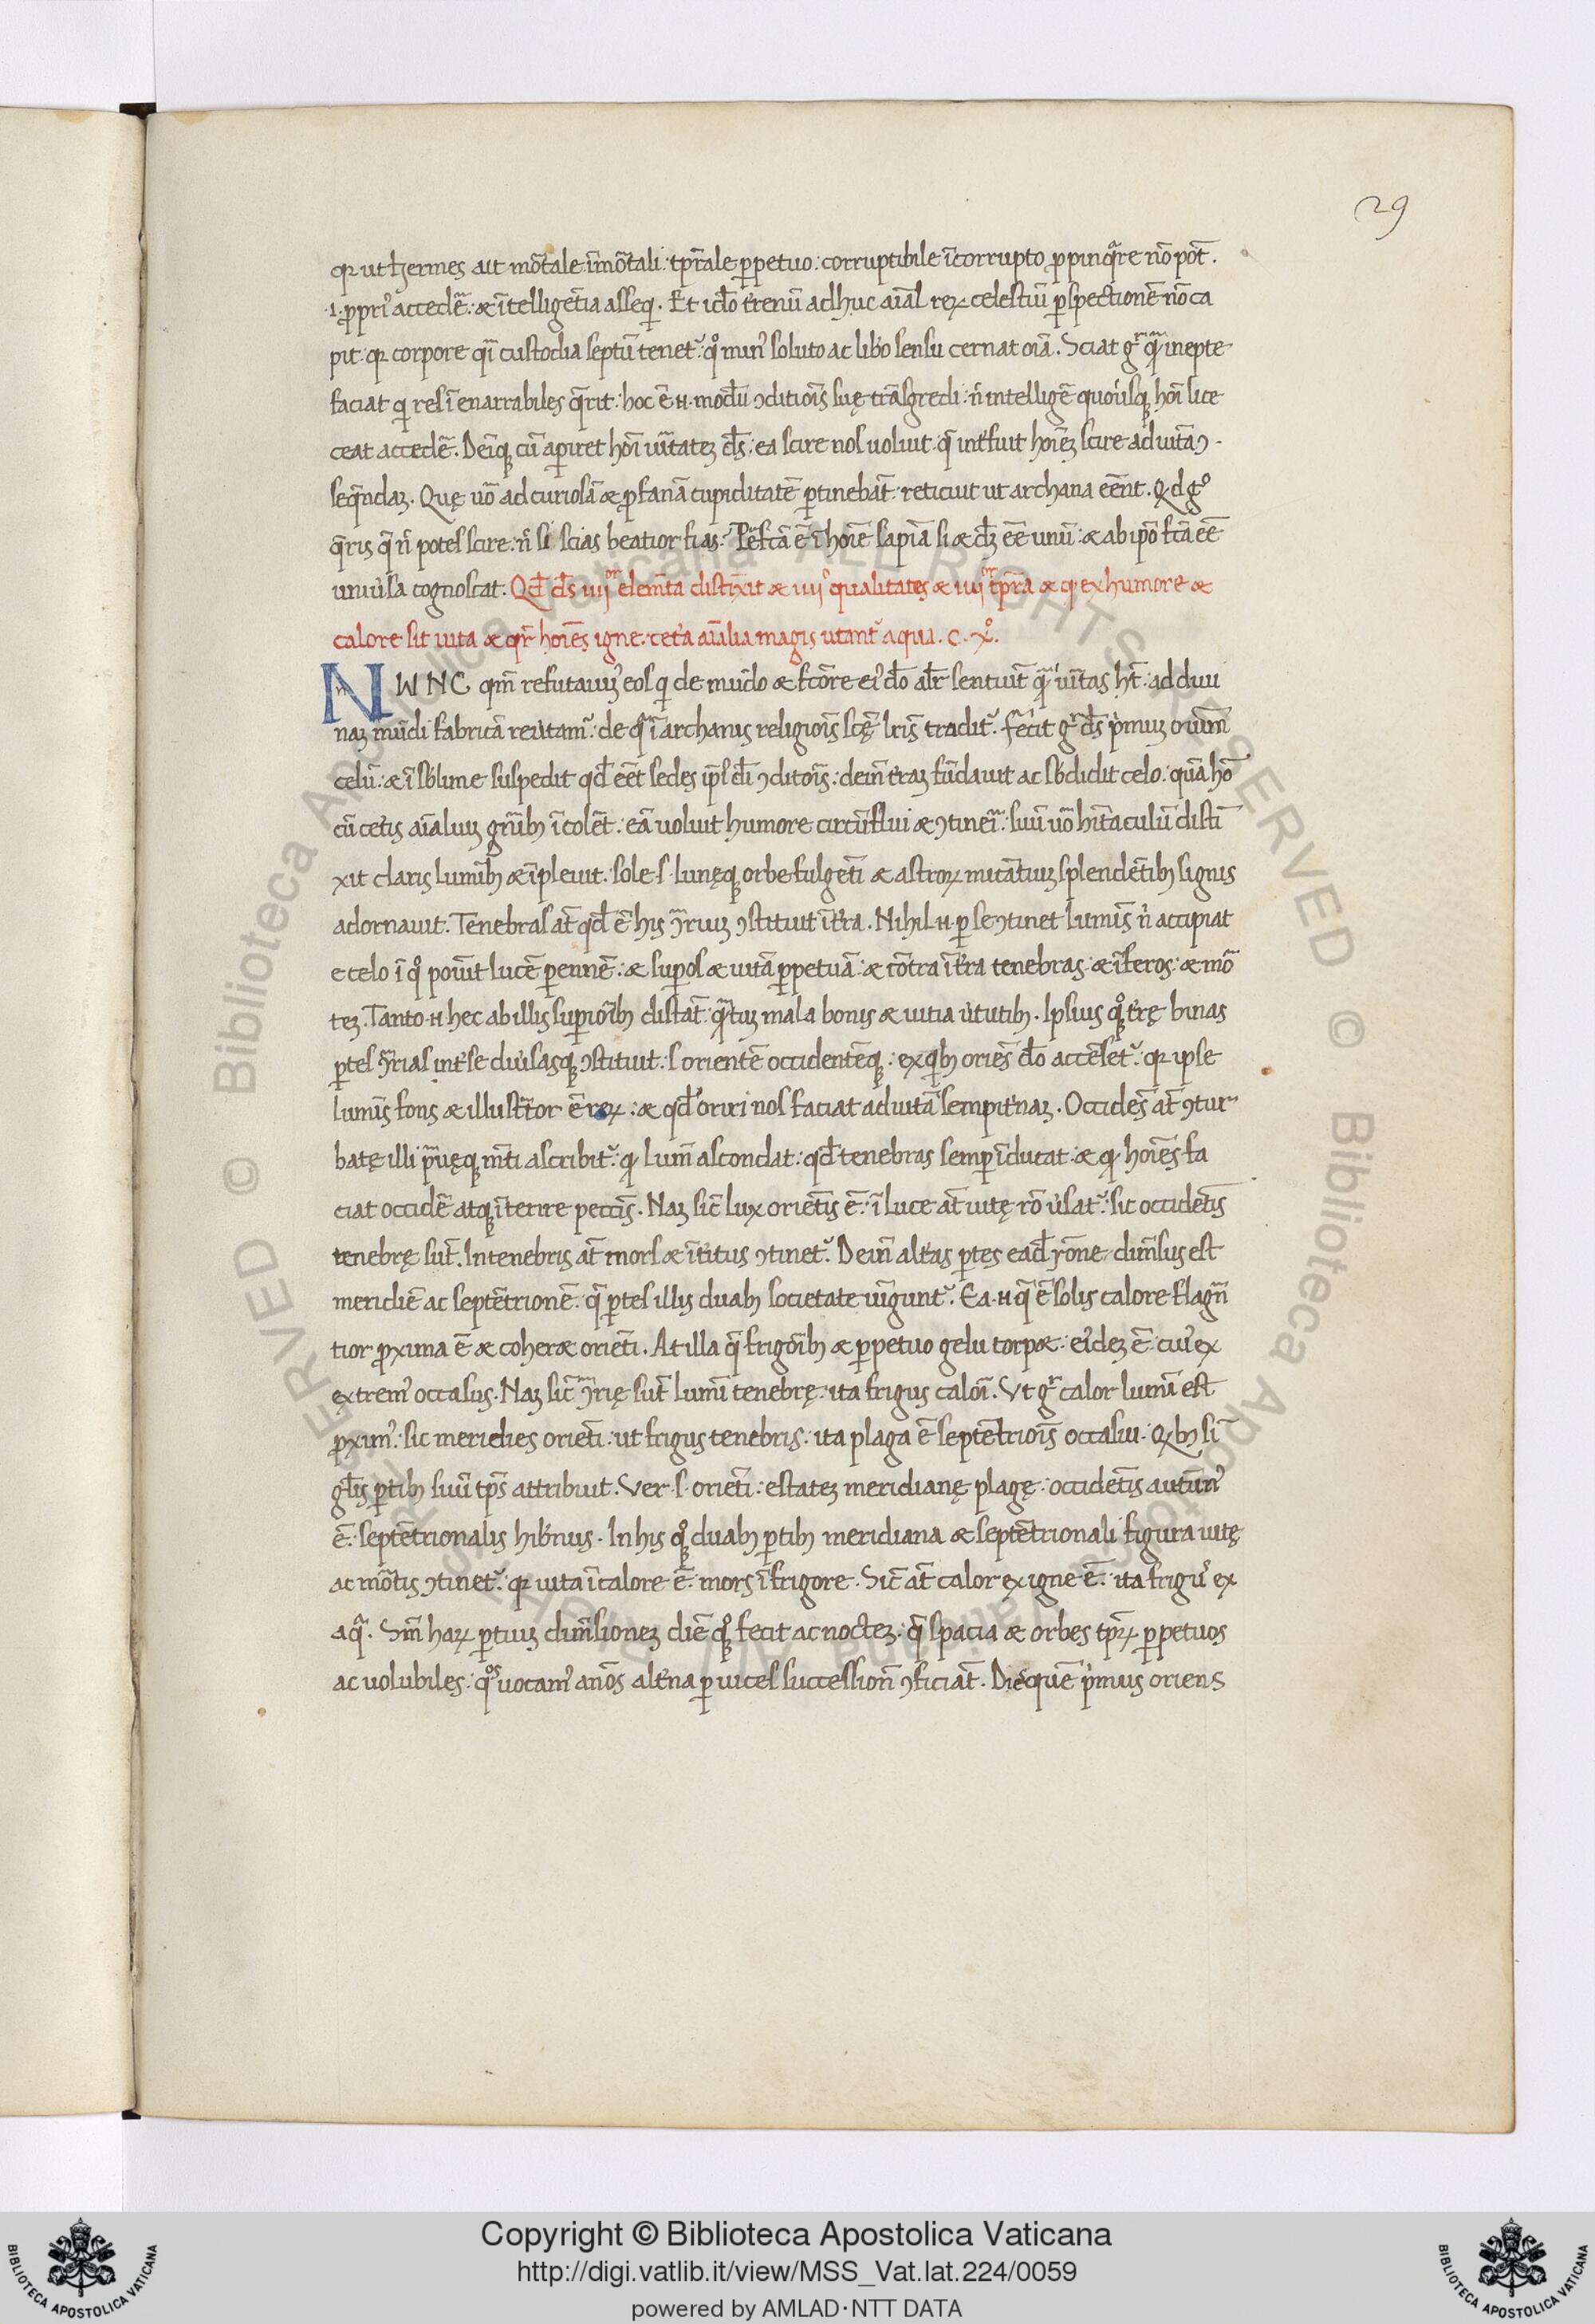 29
qr ut hermes ait mōtale īmōtali: tꝑrale ꝑpetuo: corruptibile īcorrupto ꝓpinq̄re nō pōt.
.i. ꝓpri᾽ accedē: æ ītelligētia asseq̄. Et iđo t̄renū adhuc aīal reꝝ celestiū ꝑspectionē nō ca
pit: qr corpore q̄ī custodia septū tenet᷑: qͦ min᾽ soluto ac lib̄o sensu cernat oīa. Sciat gͬ qᷓ inepte
faciat qͥ res īenarrabiles q̄rit: hoc ē .n. modū ꝯditiōīs suę trāsgredi: n̄ intelligē quousqꝫ hoī lice
ceat accedē. Deīqꝫ cū aperiret hoī ūitateꝫ đs: ea scire nos uoluit q̄ int̄fuit hoīeꝫ scire ad uitā ꝯ-
seq̄ndaꝫ. Quę uō ad curiosā æ ꝓfanā cupiditatē ꝑtinebāt: reticuit ut archana eēnt. Qd gͦ
q̄ris q̄ n̄ potes scire: n̄ si scias beatior fias? Ꝑfctā ē ī hoīe sapīa si æ đꝫ eē unū: æ ab ipō fctā eē
uniūsa cognoscat. Qđ đs iiiiᵒʳ elemta distīxit æ iiiiᵒ qualitates æ iiiiᵒʳ tꝑra æ qͥ ex humore æ
calore sit uita æ qr̄ hoīes igne: cet̄a aīalia magis utant᷑ aqua. C. xͦ.
NUNC qm̄ refutauim᾽ eos qͥ de mūdo æ fctōre ei᾽ đo alr̄ sentiūt qᷓ ūitas ht̄: ad diui
naꝫ mūdi fabricā reūtam᷑: de qᷓ ī archanis religiōīs scę lr̄is tradit᷑. fecit gͬ đs pͥmuꝫ oīum
celū: æ ī sb̄lime suspedit qđ eēt sedes ipī᾽ đi ꝯditoīs: dein̄ t̄raꝫ fūdauit ac sb̄didit celo: quā hō
cū cet̄is aīaliuꝫ gn̄ibꝫ īcolēt: eā uoluit humore circūflui æ ꝯtinēi: suū uō hītaculū distī
xit claris lumīibꝫ æ īpleuit: sole .s. lunęqꝫ orbe fulgēti æ astroꝝ micātiuꝫ splendētibꝫ signis
adornauit. Tenebras āt qđ ē his ꝯͬriuꝫ ꝯstituit īt̄ra. Nihil .n. ꝑ se ꝯtinet lumīs n̄ accipiat
e celo ī qͦ posuit lucē ꝑennē: æ suꝑos æ uitā ꝑpetuā: æ cōtra īt̄ra tenebras: æ īferos: æ mō
teꝫ. Tanto .n. hec ab illis suꝑioribꝫ distāt: qᷓtuꝫ mala bonis æ uitia ūtutibꝫ. Ipsius qͦꝫ t̄rę binas
ꝑtes ꝯͬrias int̄ se diūsasqꝫ ꝯstituit: .s. orientē occidentēqꝫ: ex qͥbꝫ oriēs đo accēset᷑: qr ipse
lumīs fons æ illustͬtor ē reꝝ: æ qđ oriri nos faciat ad uitā sempit̄naꝫ. Occidēs āt ꝯtur
batę illi pͬuęqꝫ mīti ascribit᷑: qͥ lum̄ abscondat: qđ tenebras semꝑ īducat: æ qͥ hoīes fa
ciat occidē atqꝫ īterire peccīs. Naꝫ sic̄ lux orietīs ē: ī luce āt uitę rō ūsat᷑: sic occidētis
tenebrę sūt. In tenebris āt mors æ īt̄itus ꝯtinet᷑. Dein̄ alt̄as ꝑtes eađ rōne dim̄sus est
meridiē ac septētrionē: q̄ ꝑtes illis duabꝫ societate iūgunt᷑. Ea .n. q̄ ē solis calore flagn̄
tior ꝓxima ē æ coheræ oriēti. At illa q̄ frigoribꝫ æ ꝑpetuo gelu torpæ: ei᾽deꝫ ē: cui᾽ ex
extrem᾽ occasus. Naꝫ sic̄ ꝯͬrię sūt lumī tenebrę: ita frigus calōi. Ut gͬ calor lumī est
ꝓxim᾽: sic meridies oriēti: ut frigus tenebris: ita plaga ē septētrioīs occasui. Qͥbꝫ sī
gl̄is ꝑtibꝫ suū tꝑs attribuit. Ver .s. oriēti: estateꝫ meridianę plagę: occidētis autūn᾽
ē: septētrionalis hib̄nus. In his qͦꝫ duabꝫ ꝑtibꝫ meridiana æ septētrionali figura uitę
ac mōtis ꝯtinet᷑: qr uita ī calore ē: mors ī frigore. Sic̄ āt calor ex igne ē: ita frigu᾽ ex
aqᷓ. Sm̄ haꝝ ꝑtiuꝫ dim̄sioneꝫ diē qͦꝫ fecit ac nocteꝫ: q̄ spacia æ orbes tꝑꝝ ꝑpetuos
ac volubiles: qͦs uocam᾽ anōs alt̄na ꝑ uices successionē ꝯficiāt. Dies quē pͥmus oriens
Copyright © Biblioteca Apostolica Vaticana
http://digi.vatlib.it/view/MSS_Vat.lat.224/0059
powered by AMLAD·NTT DATA